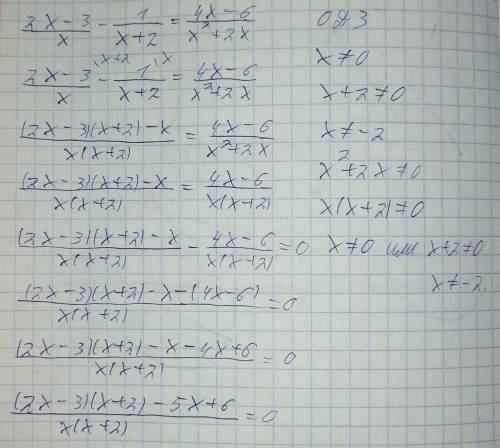 (2x-3)/x - 1/(x+2) = (4x-6)/(x²+2x)
(2x-3)/x ^(x+2) - 1/(x+2) ^(x) = (4x-6)/(x²+2x)
((2x-3)(x+2)-x)/(x(x+2)) = (4x-6)/(x²+2x)
((2x-3)(x+2)-x)/(x(x+2)) = (4x-6)/(x(x+2))
((2x-3)(x+2)-x)/(x(x+2)) - (4x-6)/(x(x+2)) = 0
((2x-3)(x+2)-x-(4x-6))/(x(x+2)) = 0
((2x-3)(x+2)-x-4x+6)/(x(x+2)) = 0
((2x-3)(x+2)-5x+6)/(x(x+2)) = 0
ОДЗ
x≠0
x+2≠0
x≠-2
x²+2x≠0
x(x+2)≠0
x≠0 или x+2≠0
x≠-2